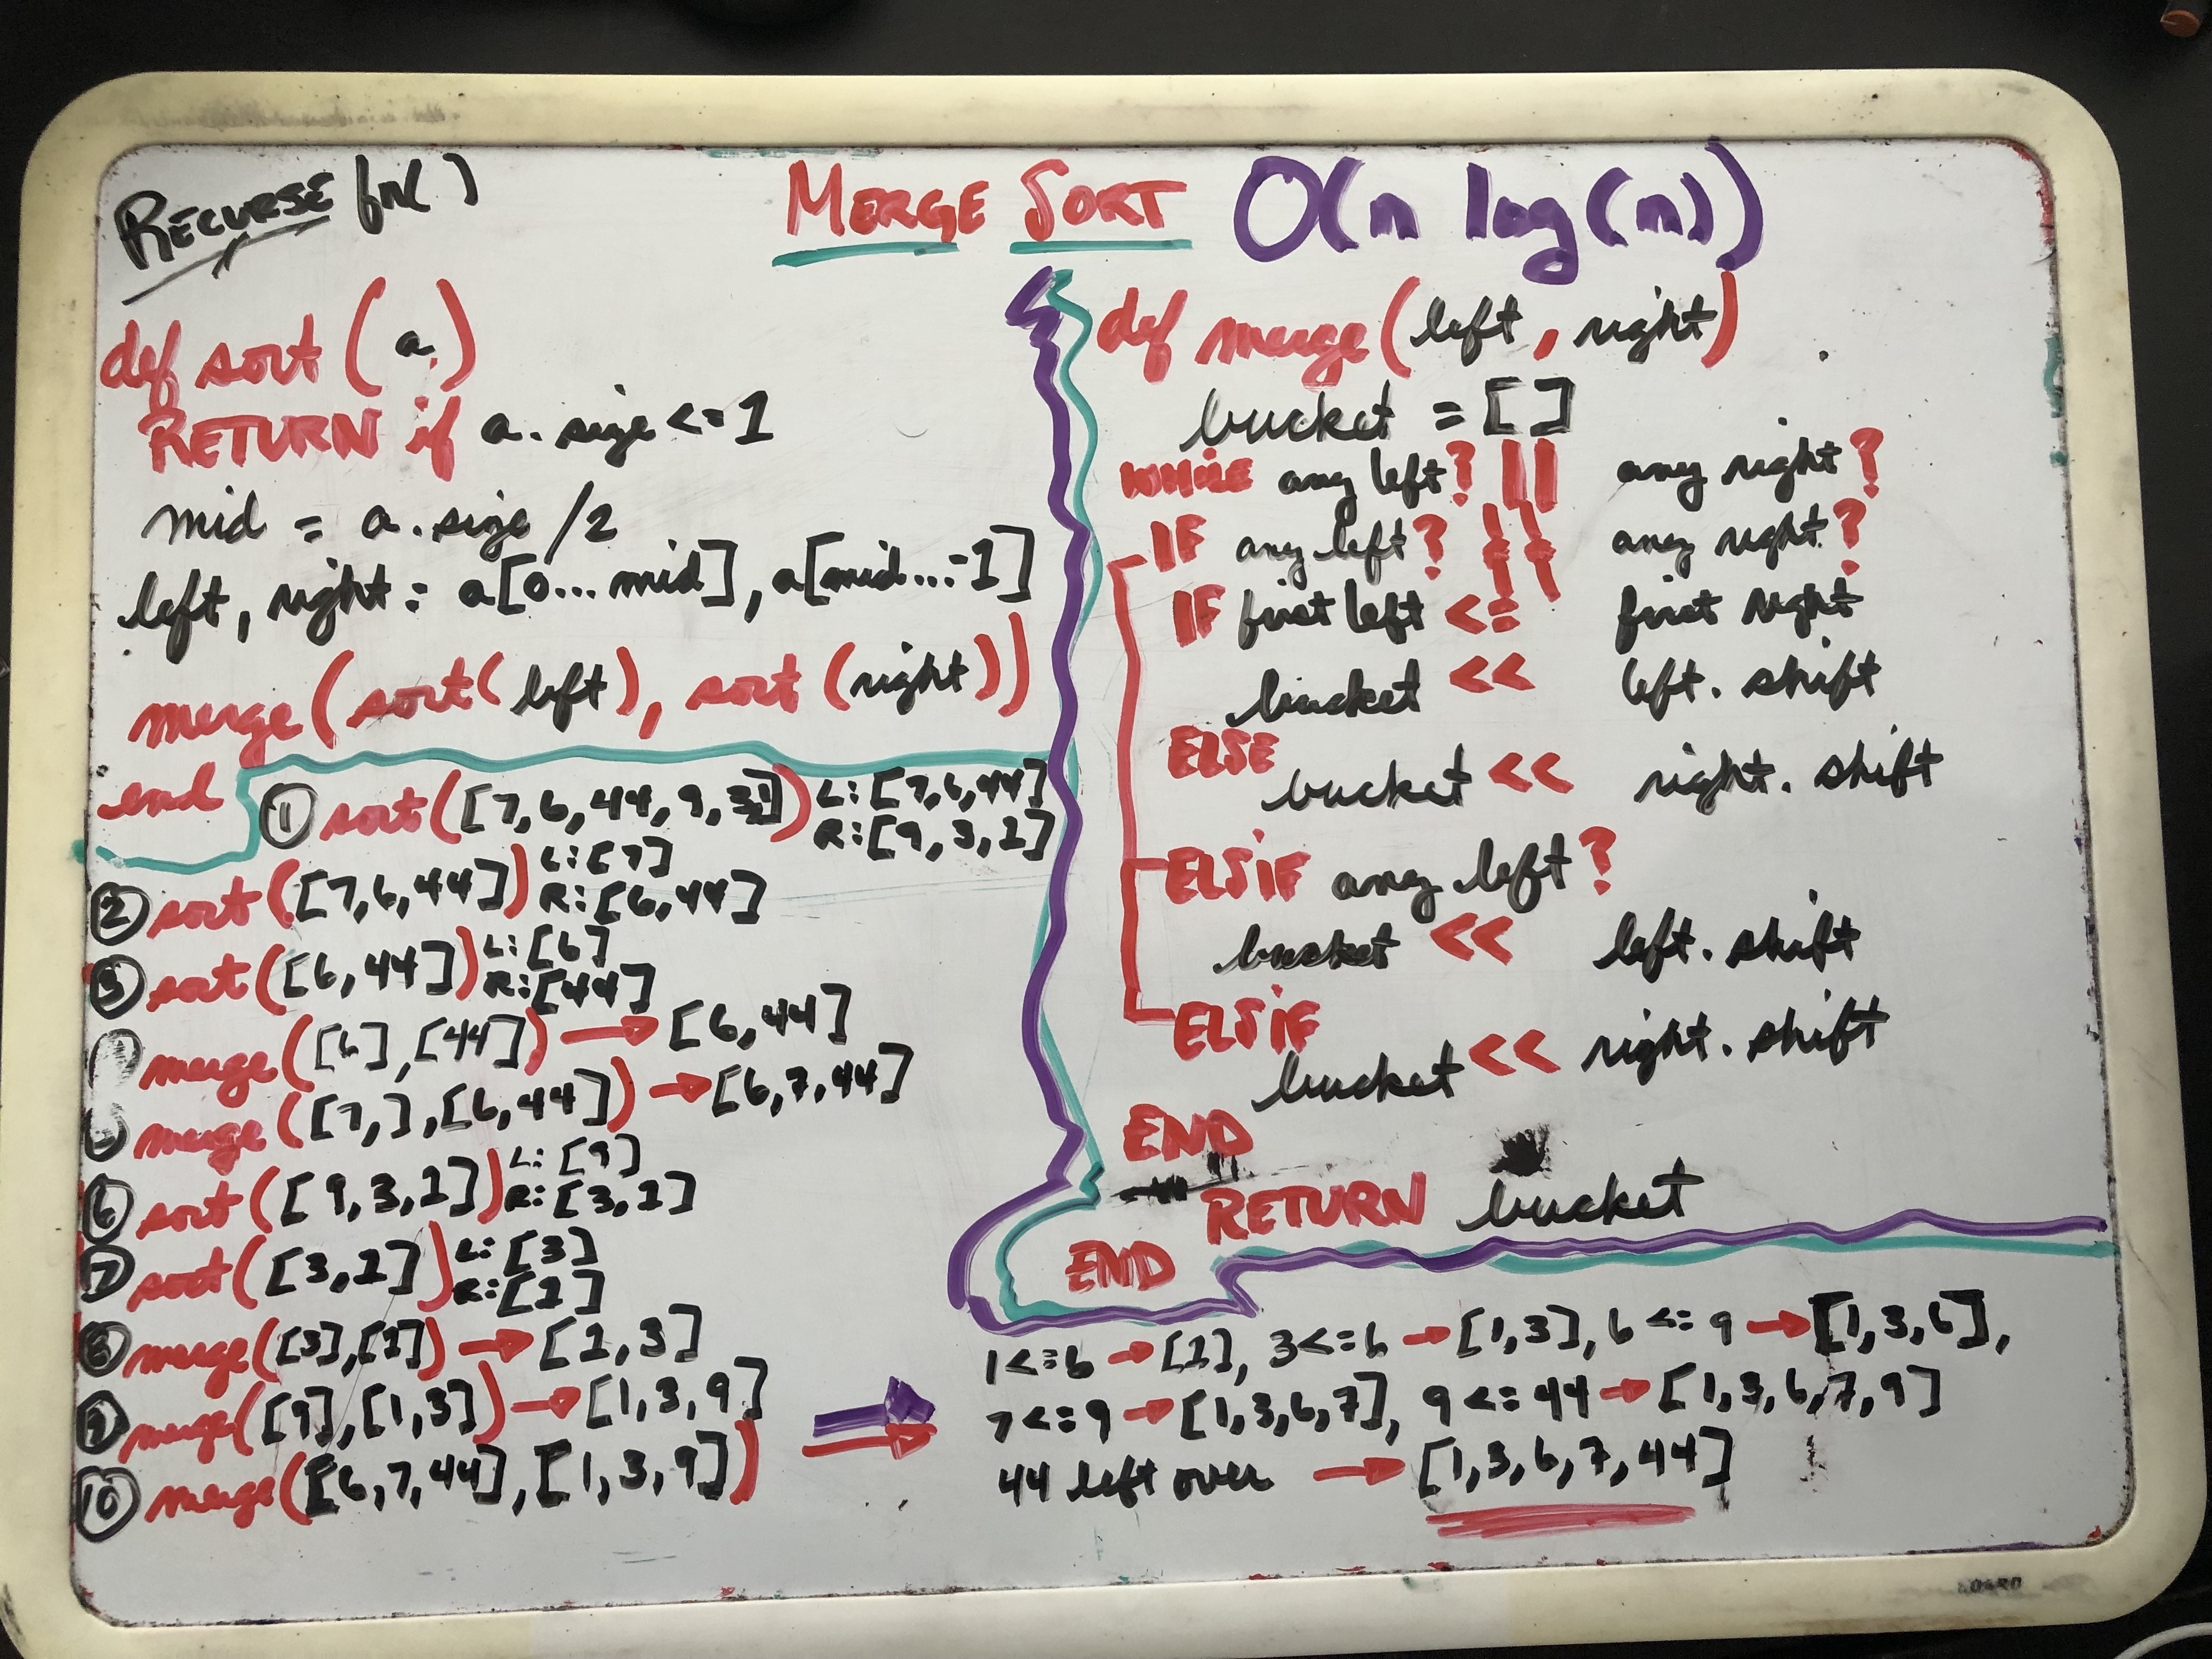 RECURSE fn( )
MERGE SORT O(n log(n))
def sort(a)
RETURN if a.size <= 1
mid = a.size /2
left, right = a[0...mid], a[mid...-1]
merge(sort(left), sort(right))
end
① sort([7,6,44,9,3,1]) L:[7,6,44]
R:[9,3,1]
② sort([7,6,44]) L:[7]
R:[6,44]
③ sort([6,44]) L:[6]
R:[44]
④ merge([6],[44]) → [6,44]
⑤ merge([7,],[6,44]) → [6,7,44]
⑥ sort([9,3,1]) L:[9]
R:[3,1]
⑦ sort([3,1]) L:[3]
R:[1]
⑧ merge([3],[1]) → [1,3]
⑨ merge([9],[1,3]) → [1,3,9]
⑩ merge([6,7,44],[1,3,9]) →
def merge(left, right)
bucket = []
WHILE any left? || any right?
IF any left? && any right?
IF first left <= first right
bucket << left.shift
ELSE
bucket << right.shift
ELSIF any left?
bucket << left.shift
ELSIF
bucket << right.shift
END
RETURN bucket
END
1<=6 → [1], 3<=6 → [1,3], 6<=9 → [1,3,6],
7<=9 → [1,3,6,7], 9<=44 → [1,3,6,7,9]
44 left over → [1,3,6,7,44]